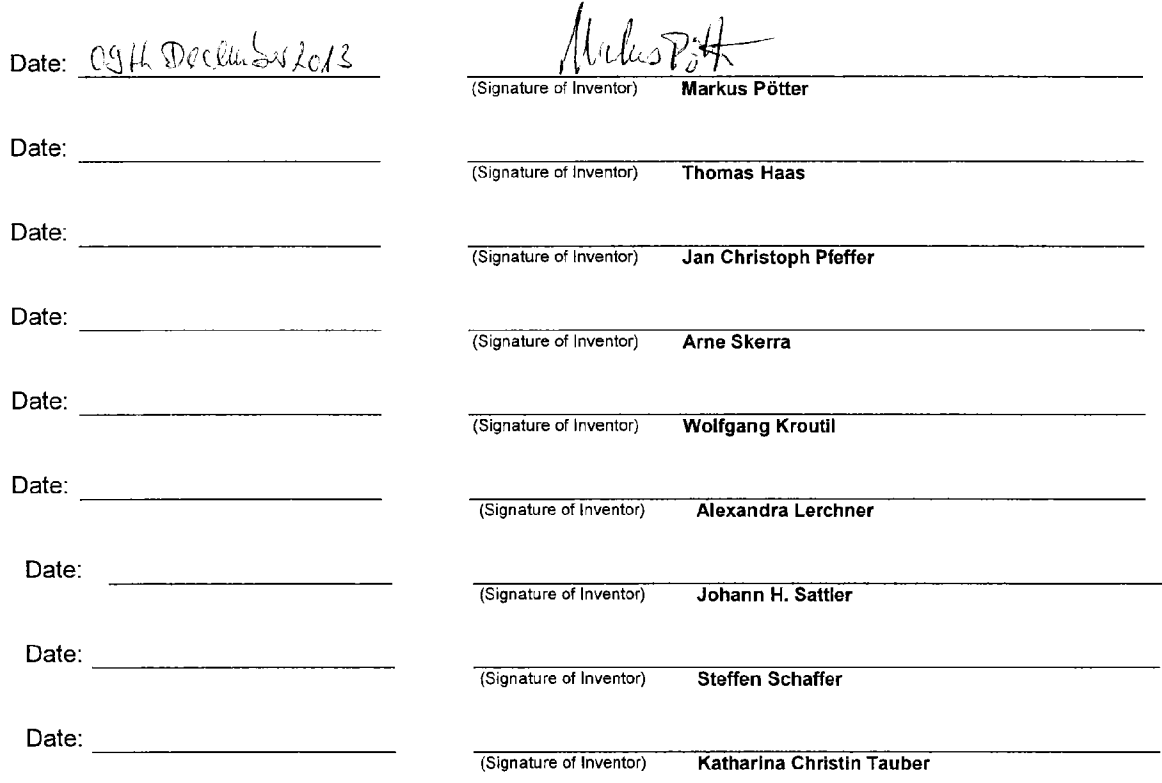 Date: 09th December 2013 Markus Pötter
(Signature of Inventor) Markus Pötter
Date:
(Signature of Inventor) Thomas Haas
Date:
(Signature of Inventor) Jan Christoph Pfeffer
Date:
(Signature of Inventor) Arne Skerra
Date:
(Signature of Inventor) Wolfgang Kroutil
Date:
(Signature of Inventor) Alexandra Lerchner
Date:
(Signature of Inventor) Johann H. Sattler
Date:
(Signature of Inventor) Steffen Schaffer
Date:
(Signature of Inventor) Katharina Christin Tauber